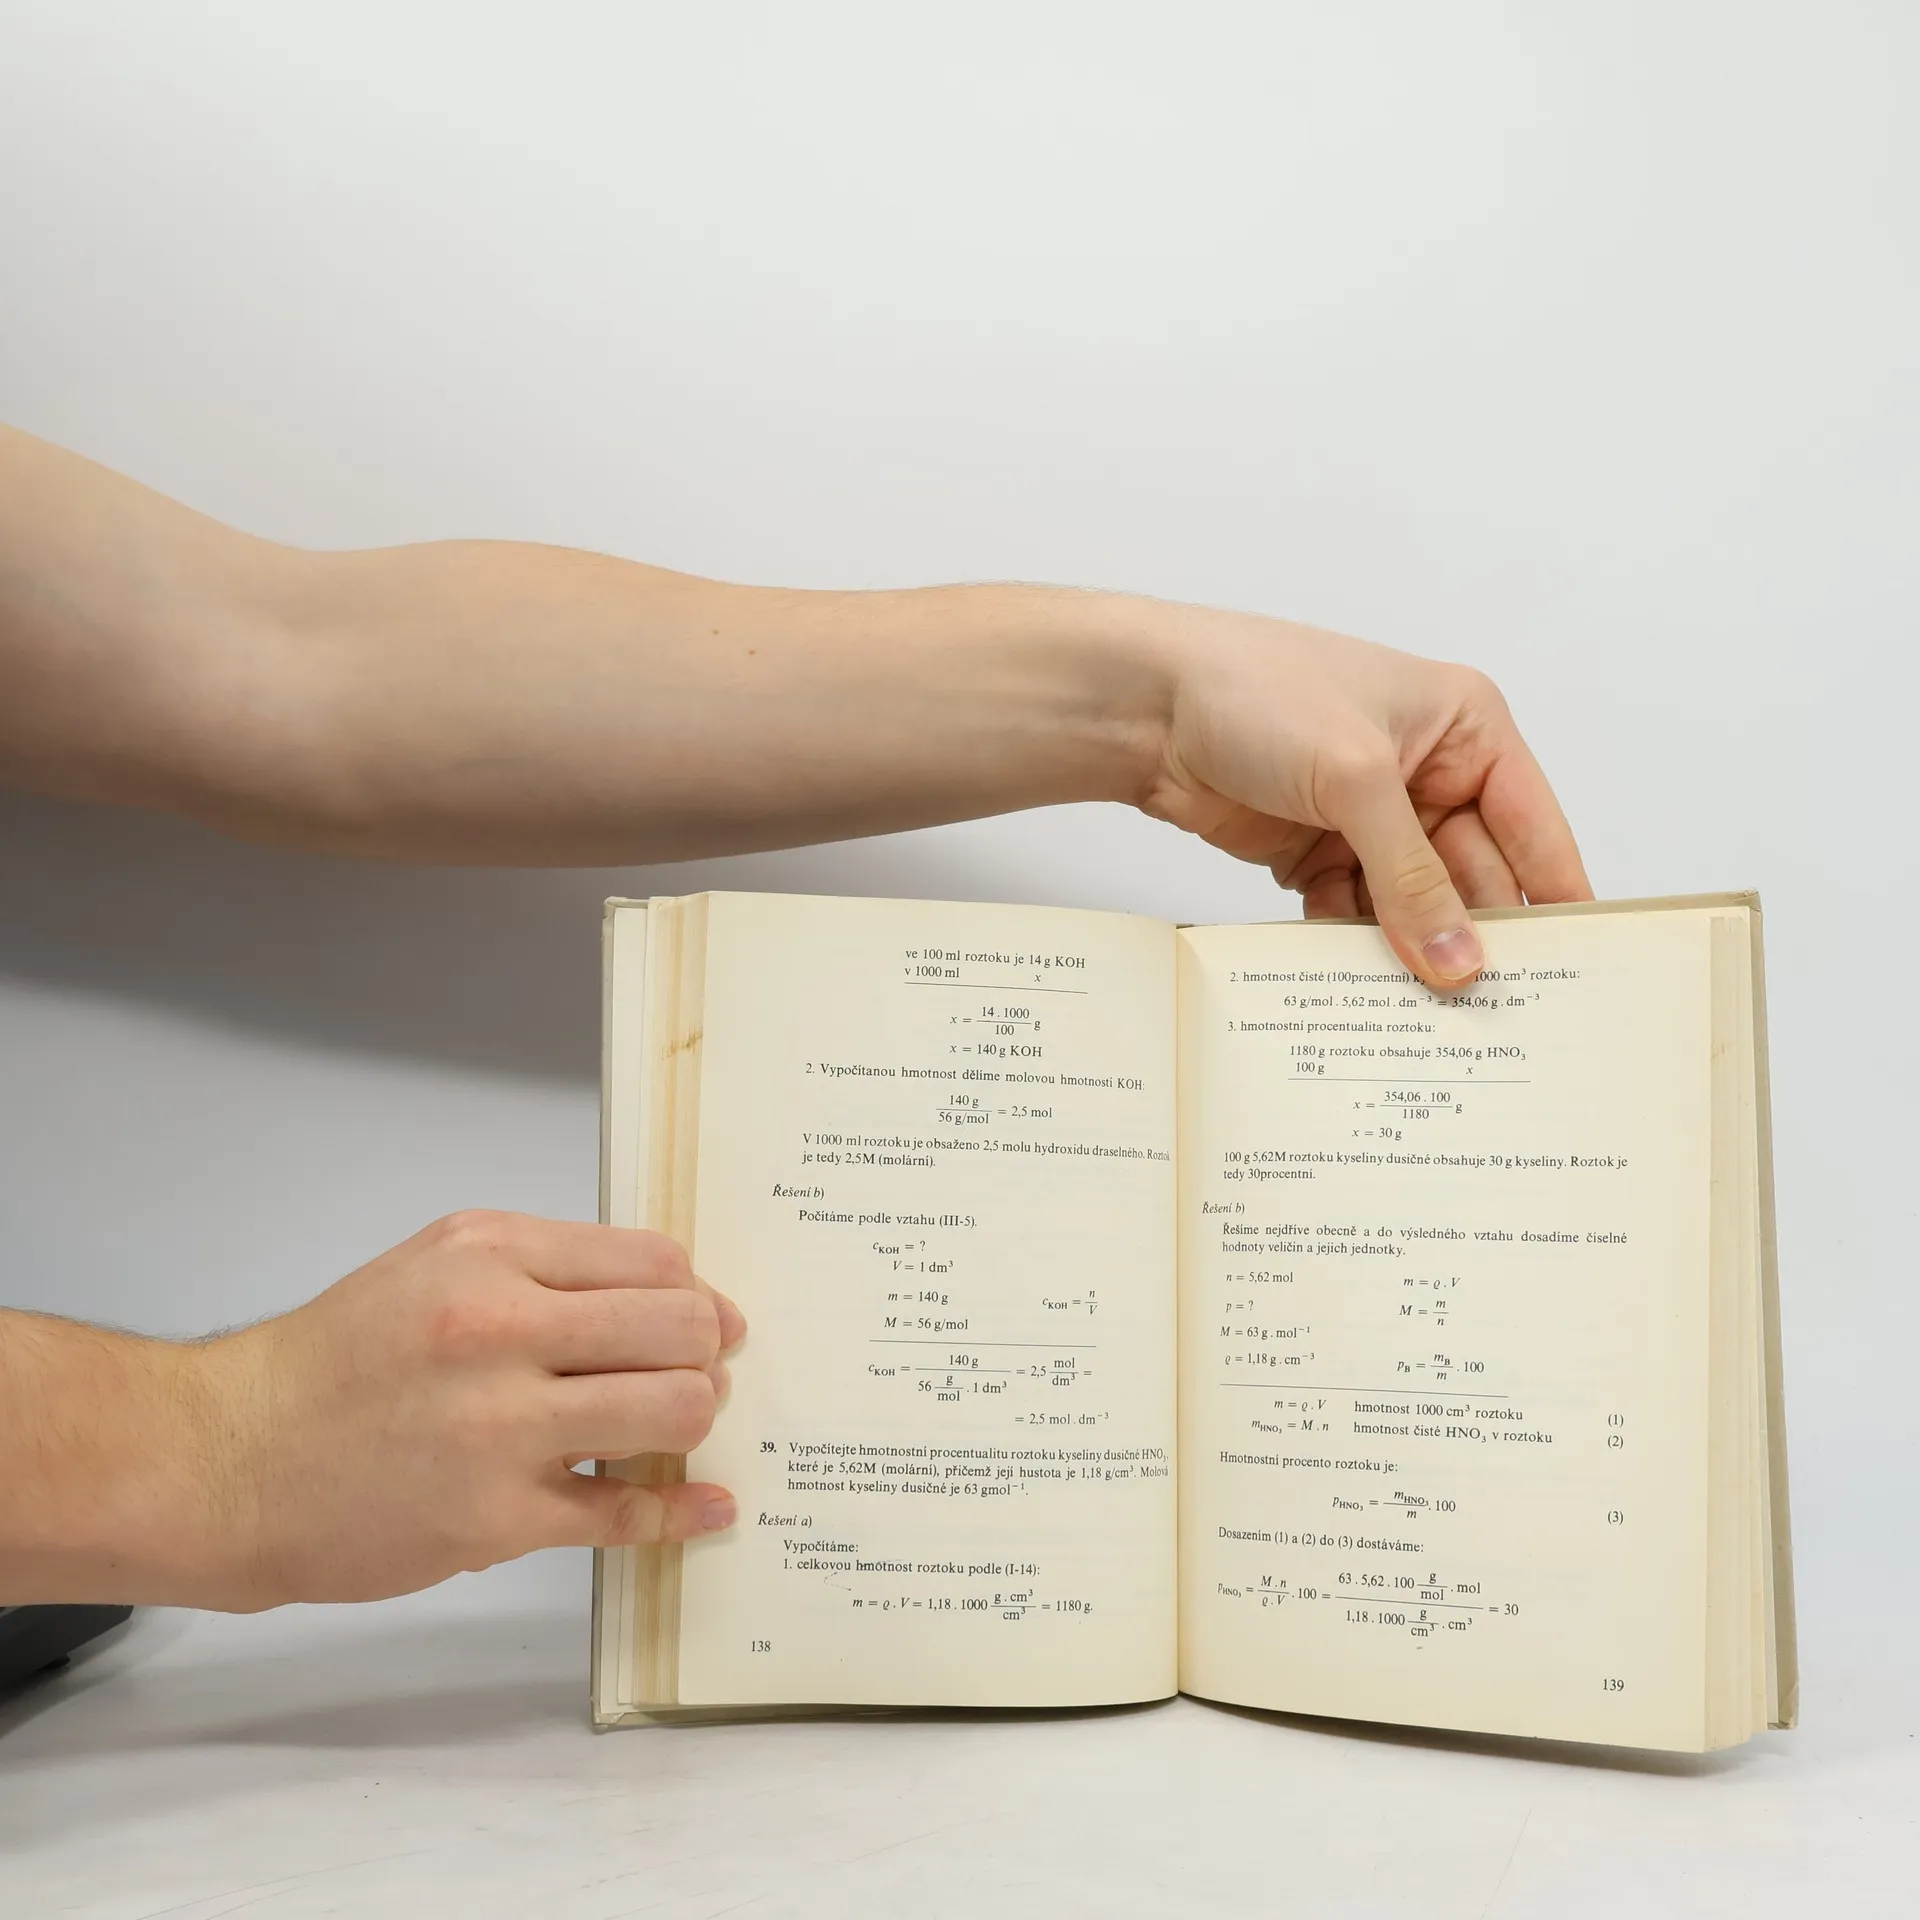 ve 100 ml roztoku je 14 g KOH
v 1000 ml x
x = 14 . 1000 / 100 g
x = 140 g KOH
2. Vypočítanou hmotnost dělíme molovou hmotností KOH:
140 g / 56 g/mol = 2,5 mol
V 1000 ml roztoku je obsaženo 2,5 molu hydroxidu draselného. Roztok
je tedy 2,5M (molární).
Řešení b)
Počítáme podle vztahu (III-5).
c_KOH = ?
V = 1 dm³
m = 140 g c_KOH = n / V
M = 56 g/mol
c_KOH = 140 g / 56 g/mol . 1 dm³ = 2,5 mol/dm³ =
= 2,5 mol . dm⁻³
39. Vypočítejte hmotnostní procentualitu roztoku kyseliny dusičné HNO₃,
které je 5,62M (molární), přičemž její hustota je 1,18 g/cm³. Molová
hmotnost kyseliny dusičné je 63 gmol⁻¹.
Řešení a)
Vypočítáme:
1. celkovou hmotnost roztoku podle (I-14):
m = ϱ . V = 1,18 . 1000 g . cm³ / cm³ = 1180 g.
138
2. hmotnost čisté (100procentní) 1000 cm³ roztoku:
63 g/mol . 5,62 mol . dm⁻³ = 354,06 g . dm⁻³
3. hmotnostní procentualita roztoku:
1180 g roztoku obsahuje 354,06 g HNO₃
100 g x
x = 354,06 . 100 / 1180 g
x = 30 g
100 g 5,62M roztoku kyseliny dusičné obsahuje 30 g kyseliny. Roztok je
tedy 30procentní.
Řešení b)
Řešíme nejdříve obecně a do výsledného vztahu dosadíme číselné
hodnoty veličin a jejich jednotky.
n = 5,62 mol m = ϱ . V
p = ? M = m / n
M = 63 g . mol⁻¹
ϱ = 1,18 g . cm⁻³ p_B = m_B / m . 100
m = ϱ . V hmotnost 1000 cm³ roztoku (1)
m_HNO₃ = M . n hmotnost čisté HNO₃ v roztoku (2)
Hmotnostní procento roztoku je:
p_HNO₃ = m_HNO₃ / m . 100 (3)
Dosazením (1) a (2) do (3) dostáváme:
p_HNO₃ = M . n / ϱ . V . 100 = 63 . 5,62 . 100 g/mol . mol / 1,18 . 1000 g/cm³ . cm³ = 30
139